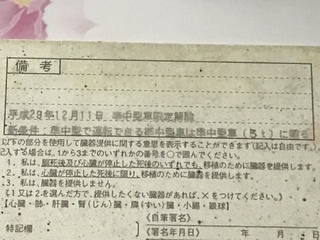 備考
平成29年12月11日、準中型車限定解除
新条件：準中型で運転できる準中型車は準中型車（5t）に限る
以下の部分を使用して臓器提供に関する意思を表示することができます(記入は自由です。
記入する場合は、1から3までのいずれかの番号を○で囲んでください。
1. 私は、脳死後及び心臓が停止した死後のいずれでも、移植のために臓器を提供します。
2. 私は、心臓が停止した死後に限り、移植のために臓器を提供します。
3. 私は、臓器を提供しません。
(1又は2を選んだ方で、提供したくない臓器があれば、×をつけてください。)
【心臓・肺・肝臓・腎(じん)臓・膵(すい)臓・小腸・眼球】
特記欄
(自筆署名)
(署名年月日) 年 月